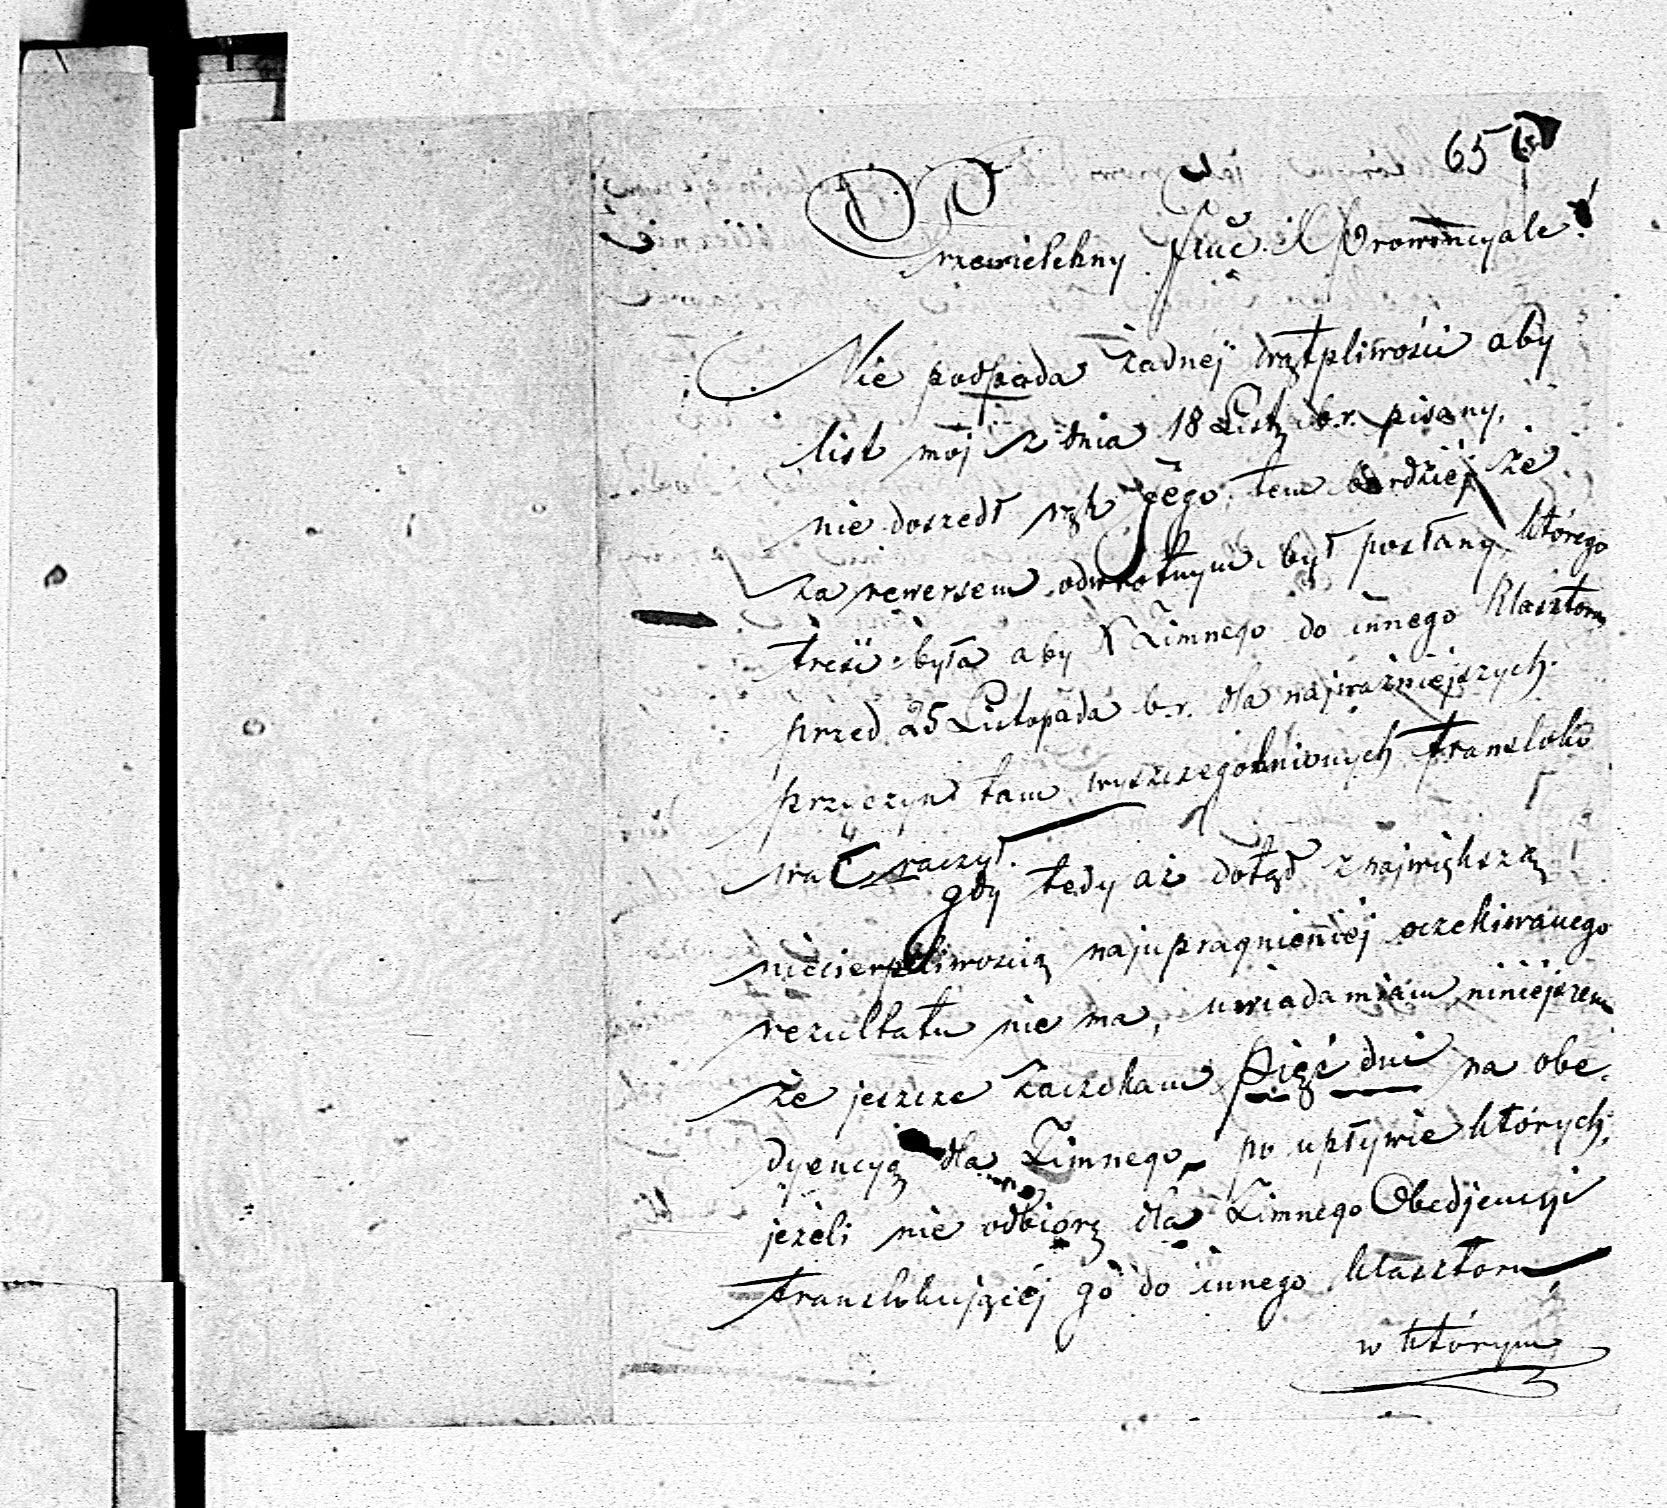 65
Przewielebny Xże Prowincyale!
Nie podpada żadnej wątpliwości aby
list mój z dnia 18 Listp b.r. pisany,
nie doszedł rąk Jego, tem bardziej że
za rewersem odwrotnym był posłany, którego
treść była aby X Zimnego do innego Klasztoru
przed 25 Listopada b.r. dla najważniejszych
przyczyn tam wyszczególnionych transloko
wać raczył.
gdy tedy aż dotąd z największą
niecierpliwością najupragnieniej oczekiwanego
rezultatu nie ma, uwiadamiam niniejszem
że jeszcze zaczekam pięć dni na obe-
dyencyą dla Zimnego, po upływie których,
jeżeli nie odbiorę dla Zimnego Obedjencyi
translokującej go do innego klasztoru
w którym